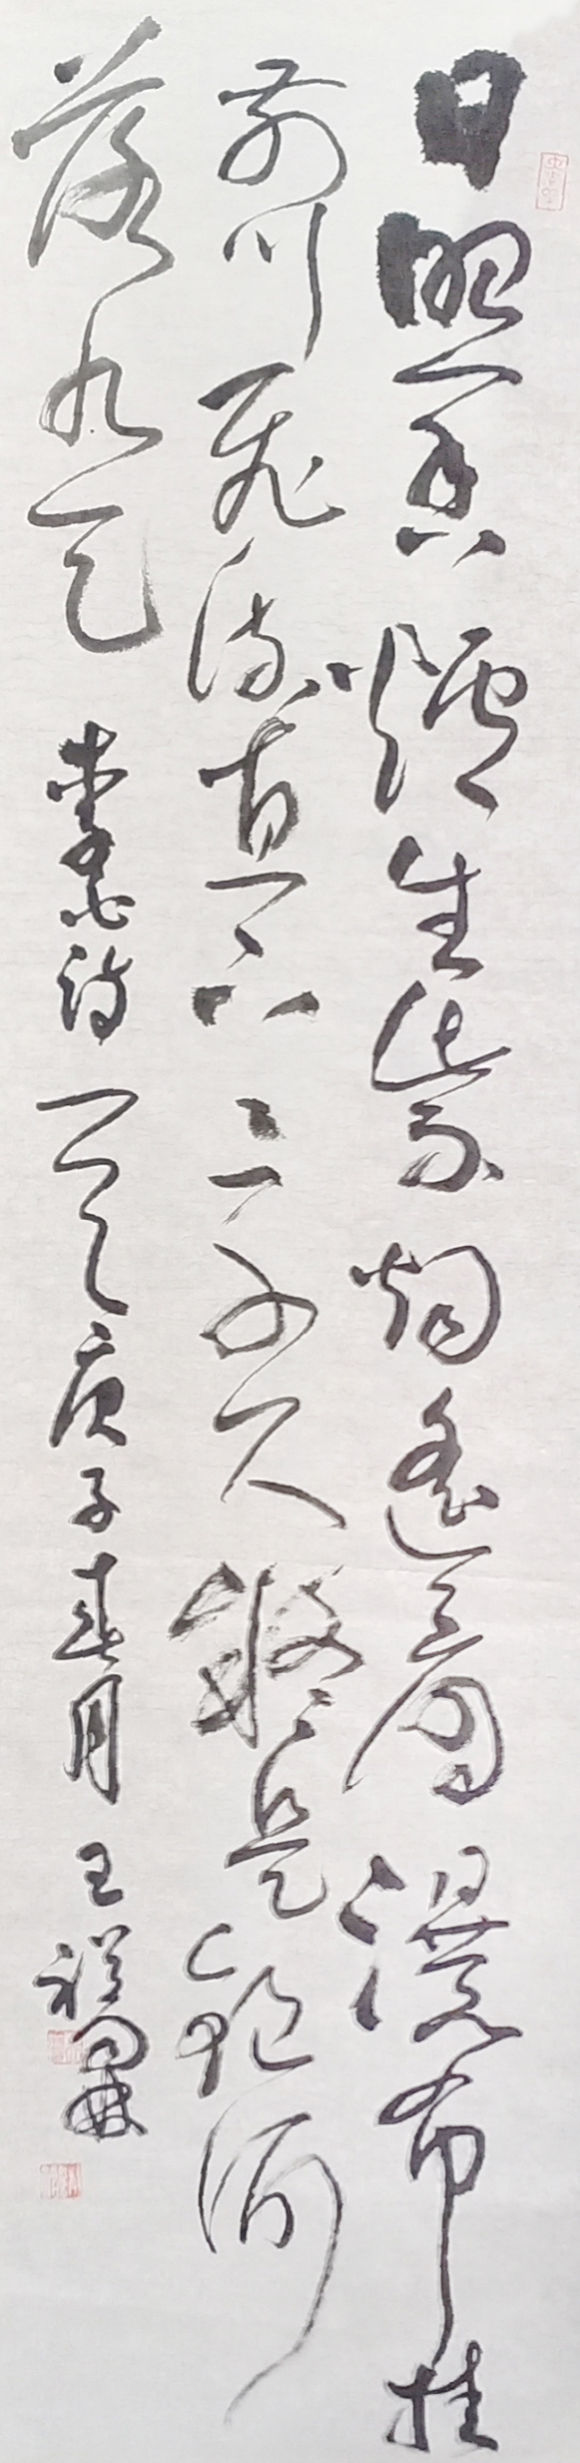 日照香爐生紫烟遙看瀑布挂
前川飛流直下三千尺疑是銀河
落九天 李白詩一首 庚子春月 王祥